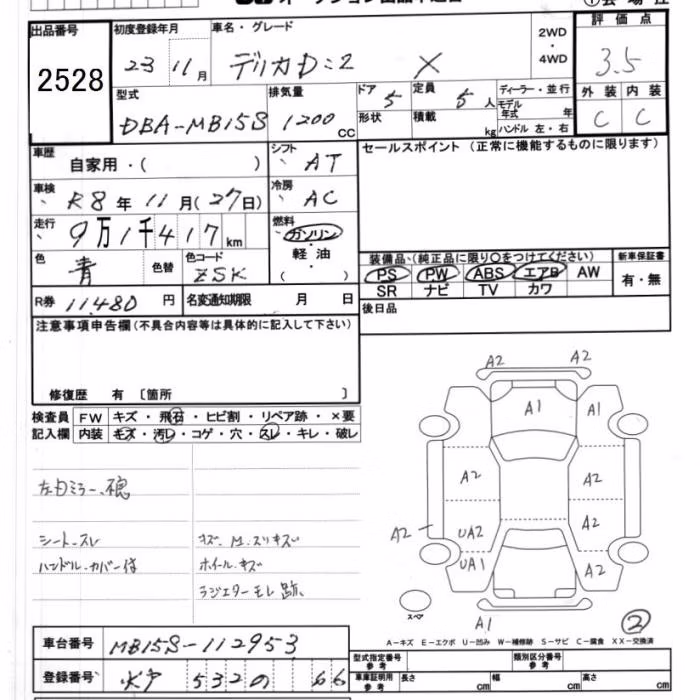 出品番号
2528
初度登録年月
23 11月
車名・グレード
デリカD:2 X
2WD
・
4WD
評価点
3.5
外装 内装
C C
型式
DBA-MB15S
排気量
1200 CC
ドア 5
定員 5人
形状
積載 kg
ディーラー・並行
モデル年式 年
ハンドル 左・右
車歴
自家用・( )
シフト
AT
セールスポイント (正常に機能するものに限ります)
車検
R8年 11月(27日)
冷房
AC
走行
9万1千417km
燃料
ガソリン
軽油
( )
色
青
色替
色コード
ZSK
装備品、(純正品に限り○をつけてください)
PS PW ABS エアB AW
SR ナビ TV カワ
新車保証書
有・無
R券 11,480円
名変通知期限 月 日
後日品
注意事項申告欄(不具合内容等は具体的に記入して下さい)
修復歴 有 〔箇所 〕
検査員
記入欄
FW キズ・飛石・ヒビ割・リペア跡・×要
内装 キズ・汚レ・コゲ・穴・スレ・キレ・破レ
シート.スレ
ハンドル.カバー付
キズ.M.スリキズ
ホイール.キズ
ラジエターモレ跡.
A2 A2
A1 A1
A2 A2
A2 UA2 A2
UA1 A2
スペア
A1
2
A-キズ E-エクボ U-凹み W-補修跡 S-サビ C-腐食 XX-交換済
車台番号
MB15S-112953
登録番号
水戸 532の 66
型式指定番号
参考
類別区分番号
参考
車庫証明用
参考
長さ cm
幅 cm
高さ cm